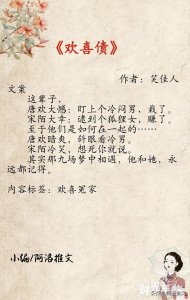 《欢喜债》
作者：笑佳人
文案
这辈子，
唐欢大憾：盯上个冷闷男，栽了。
宋陌大幸：逮到个狐狸女，赚了。
至于他们是如何在一起的……
唐欢暗爽，斜眼看冷男。
宋陌冷笑，想死你就说。
其实那九场梦中相遇，他和她，永
远都记得。
内容标签：欢喜冤家
小编/阿洛推文